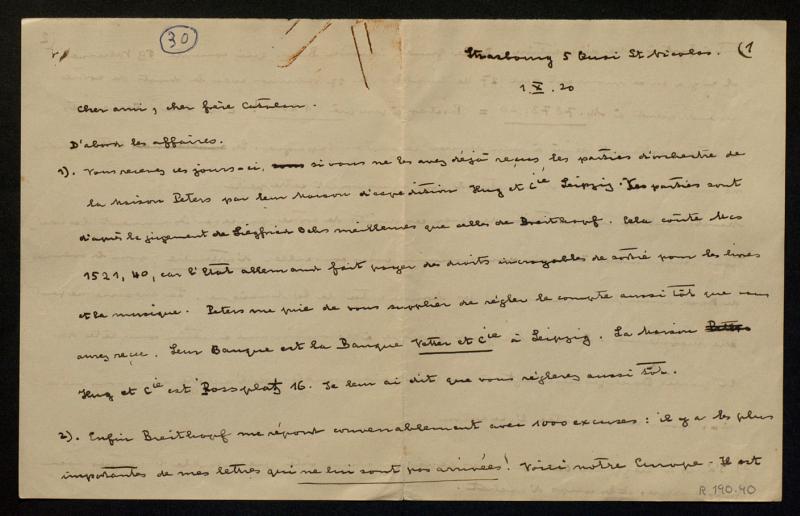 30
Strasbourg 5 Quai St Nicolas. (1
1.X.20
Cher ami, cher frère Catalan.
D'abord les affaires.
1). Vous recevez ces jours-ci, si vous ne les avez déjà reçus les parties d'orchestre de
la Maison Peters par leur Maison d'expédition Hug et Cie Leipzig. Les parties sont
d'après le jugement de Siegfried Ochs meilleures que celles de Breitkopf. Cela coûte Mcs
1521,40, car l'Etat allemand fait payer des droits incroyables de sortie pour les livres
et la musique. Peters me prie de vous supplier de régler le compte aussi tôt que vous
aurez reçu. Leur Banque est la Banque Vetter et Cie à Leipzig. La Maison Peters
Hug et Cie est Rossplatz 16. Je leur ai dit que vous réglerez aussi tôt.
2). Enfin Breitkopf me répond convenablement avec 1000 excuses : il y a les plus
importantes de mes lettres qui ne lui sont pas arrivées! Voici notre Europe - Il est
R.190.40